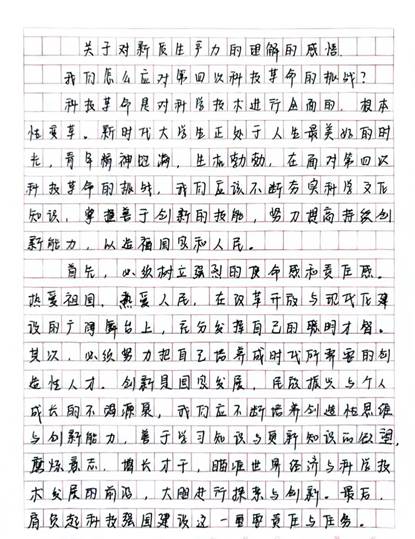 关于对新质生产力的理解的感悟
我们怎么应对第四次科技革命的挑战?
科技革命是对科学技术进行全面的、根本
性变革。新时代大学生正处于人生最美好的时
光,青年精神饱满,生机勃勃,在面对第四次
科技革命的挑战,我们应该不断夯实科学文化
知识,掌握善于创新的技能,努力提高持续创
新能力,以造福国家和人民。
首先,必须树立强烈的使命感和责任感。
热爱祖国,热爱人民,在改革开放与现代化建
设的广阔舞台上,充分发挥自己的聪明才智。
其次,必须努力把自己培养成时代所需要的创
造性人才。创新是国家发展,民族振兴与个人
成长的不竭源泉,我们应不断培养创造性思维
与创新能力,善于学习知识与更新知识的欲望,
磨炼意志,增长才干,瞄准世界经济与科学技
术发展的前沿,大胆进行探索与创新。最后,
肩负起科技强国建设这一重要责任与任务。